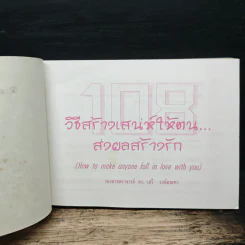 108
วิธีสร้างเสน่ห์ให้ตน...
สวยผลสร้างรัก
(How to make anyone fall in love with you)